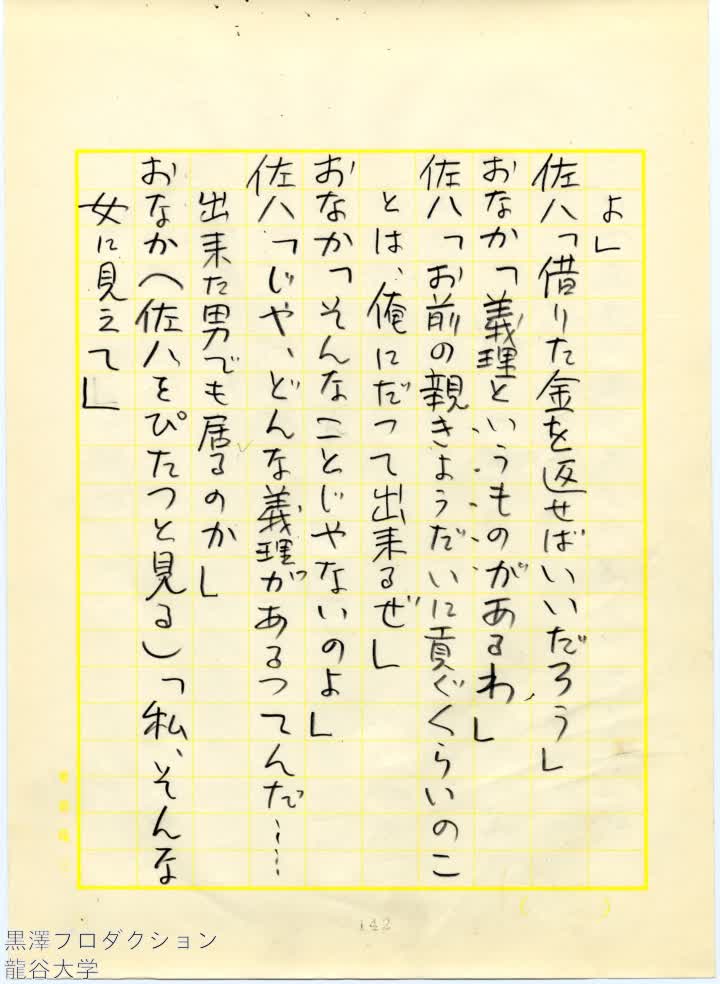 よ」
佐八「借りた金を返せばいいだろう」
おなか「義理というものがあるわ」
佐八「お前の親きようだいに貢ぐくらいのこ
とは、俺にだつて出来るぜ」
おなか「そんなことじやないのよ」
佐八「じや、どんな義理があるつてんだ……
出来た男でも居るのか」
おなか（佐八をぴたつと見る）「私、そんな
女に見えて」
142
黒澤プロダクション
龍谷大学